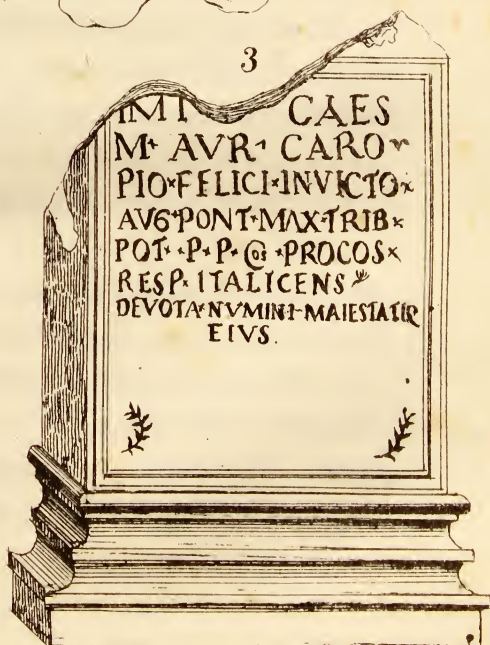 3
IMP CAES
M· AVR· CARO
PIO·FELICI·INVICTO·
AVG·PONT·MAX·TRIB·
POT· ·P·P· COS ·PROCOS·
RESP· ITALICENS
DEVOTA·NVMINI·MAIESTATIQ
EIVS.